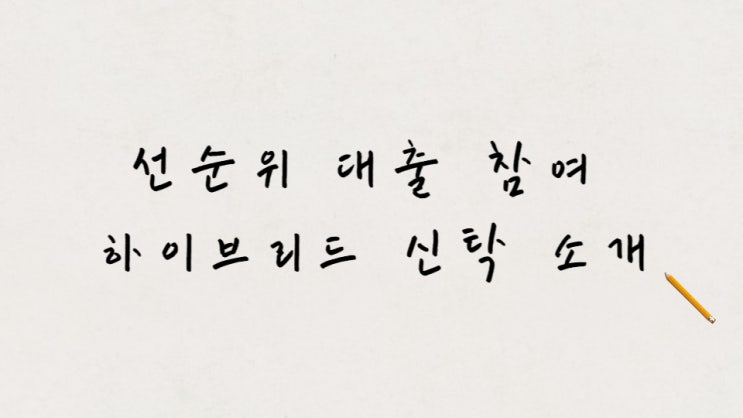 선순위 대출 참여
하이브리드 신탁 소개